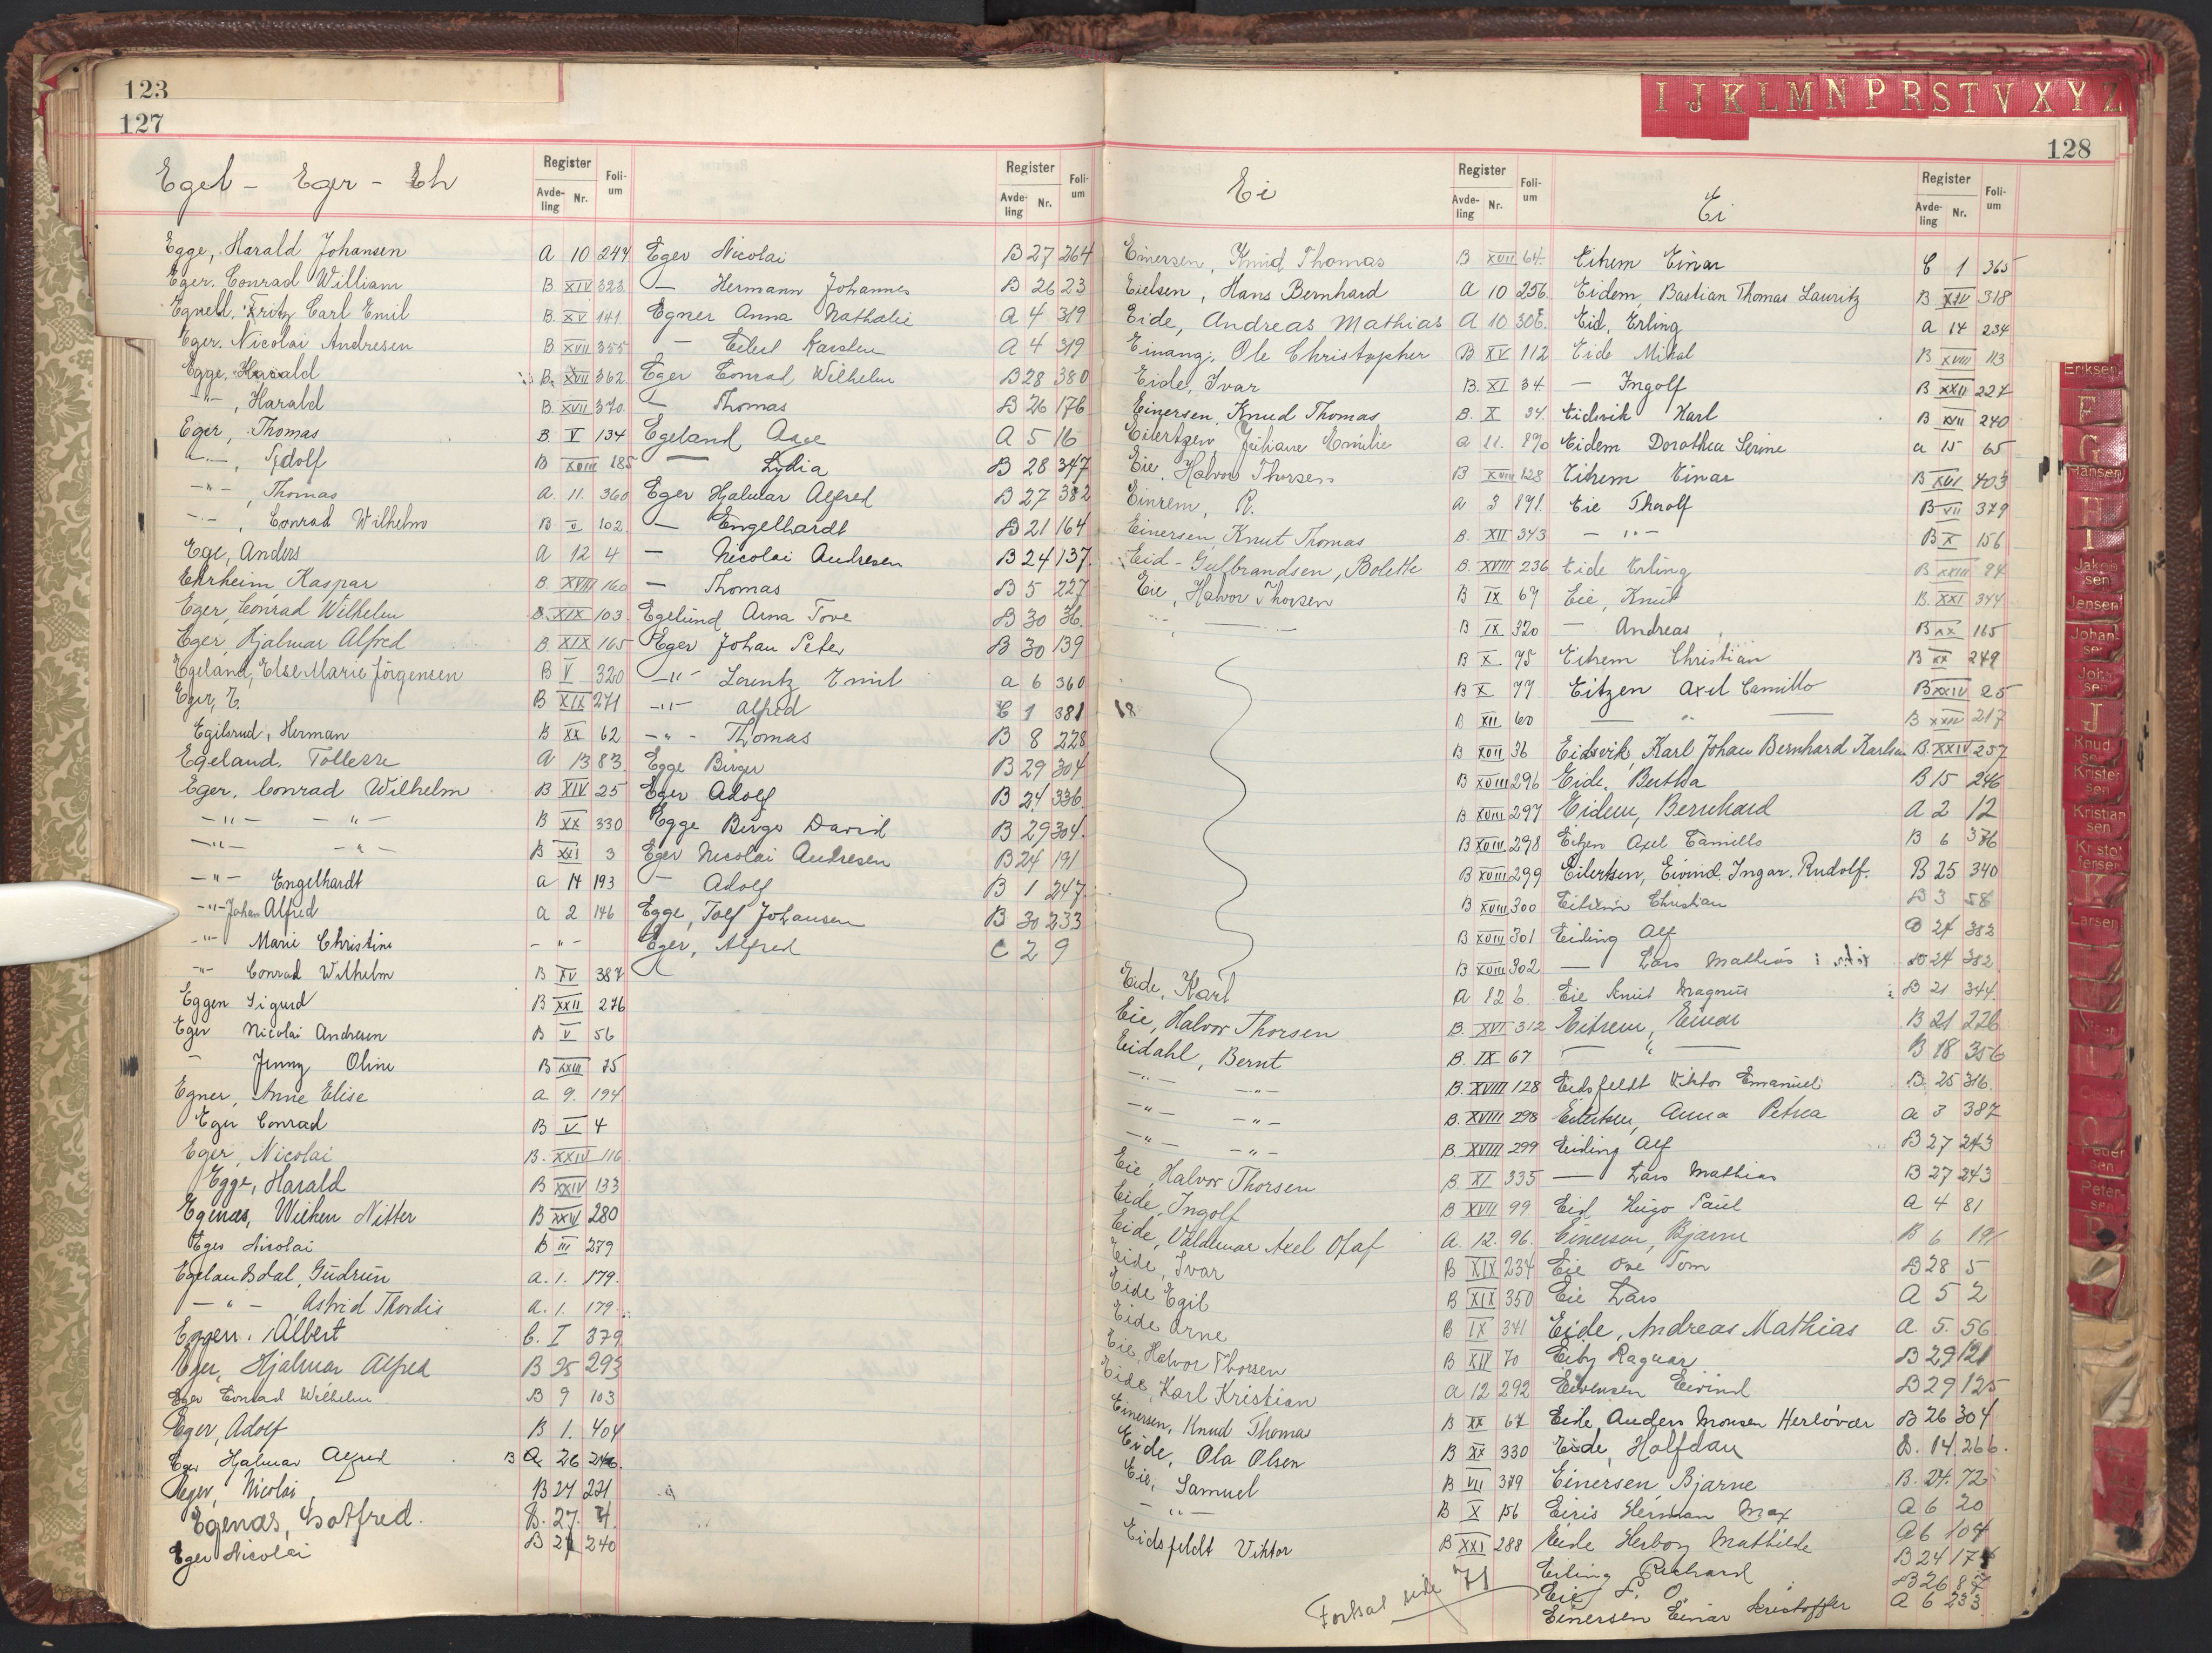 123
127
Egel - Eger - Eh
Register
Avde-ling Nr. Foli-um
Egge, Harald Johansen A 10 244
Eger. Conrad William B XIV 323
Egnell, Fritz Carl Emil B. XV 141
Eger. Nicolai Andresen B XVII 355
Egge, Harald B. XVII 362
-"- , Harald B. XVII 370
Eger, Thomas B V 134
-"- , Adolf B XVIII 185
-"- , Thomas A. 11. 360
-"- , Conrad Wilhelm B II 102
Ege, Anders A 12 4
Ehrheim Kaspar B. XVIII 160
Eger, Conrad Wilhelm B. XIX 103
Eger, Hjalmar Alfred B. XIX 165
Egeland, Else Marie Jörgensen B V 320
Eger, E. B XIX 271
Egilsrud, Herman B XX 62
Egeland. Tollesse A 13 83.
Eger. Conrad Wilhelm B XIV 25
-"- -"- B XX 330
-"- -"- B XXI 3
-"- Engelhardt A 14 193
-"- Johan Alfred A 2 146
-"- Marie Christine - " -
-"- Conrad Wilhelm B XV 387
Eggen Sigurd B XXII 276
Eger Nicolai Andresen B V 56
- Jenny Oline B XXIII 75
Egner, Anne Elise A 9. 194
Eger Conrad B V 4
Eger, Nicolai B. XXIV 116
Egge, Harald B XXIV 133
Egenæs, Wilken Nitter B XXIV 280
Eger Nicolai B III 279
Egelandsdal, Gudrun A. 1. 179.
- " - Astrid Thordis A. 1. 179
Eggen. Albert C. I 379
Eger, Hjalmar Alfred B 25 293
Eger Conrad Wilhelm B 9 103
Eger, Adolf B 1. 404
Eger Hjalmar Alfred B A 26 246
Eger, Nicolai B 24 221
Egenæs, Gotfred. B. 27. 4.
Eger Nicolai B 21 240
Register
Avde-ling Nr. Foli-um
Eger Nicolai B 27 264
- Hermann Johannes B 26 23
Egner Anna Nathalie A 4 319
- Eilert Karsten A 4 319
Eger Conrad Wilhelm B 28 380
- Thomas B 26 176
Egeland, Aage A 5 16
- Lydia B 28 347
Eger Hjalmar Alfred B 27 382
- Engelhardt B 21 164
- Nicolai Andresen B 24 137.
- Thomas B 5 227
Egelund Arna Tove B 30 36.
Eger Johan Peter B 30 139
-"- Lorentz Emil A 6 360
-"- Alfred C 1 381
-"- Thomas B 8 228
Egge Birger B 29 304
Eger Adolf B 24 336
Egge Birger David B 29 304.
Eger Nicolai Andresen B 24 191
- Adolf B 1 247
Egge, Tolf Johansen B 30 233
Eger, Alfred C 2 9
128
I J K L M N P R S T V X Y Z
Ei
Register
Avde-ling Nr. Foli-um
Einersen, Knud Thomas B XVII 64.
Eielsen, Hans Bernhard A 10 256
Eide, Andreas Mathias A 10 306.
Einang, Ole Christopher B. XV 112
Eide, Ivar B. XI 34
Einersen, Knud Thomas B. X 34.
Eilertzen Juliane Emilie A 11. 890
Eie, Halvor Thorsen B XVIII 128
Einrem, R. A 3 891.
Einersen, Knut Thomas B. XII 343
Eid-Gulbrandsen, Bolette B XVIII 236
Eie, Halvor Thorsen B IX 69
-"- B IX 320
B X 75
B X 77
18 B XII 60
B XVII 36
B XVIII 296
B XVIII 297
B XVIII 298
B XVIII 299
B XVIII 300
B XVIII 301
B XVIII 302
Eide, Karl A 12 6.
Eie, Halvor Thorsen B. XVI 312
Eidahl, Bernt B. IX 67
-"- -"- B. XVIII 128
-"- -"- B. XVIII 298
-"- -"- B. XVIII 299
Eie, Halvor Thorsen B XI 335
Eide, Ingolf B XVII 99
Eide, Valdemar Axel Olaf A. 12. 96.
Eide, Ivar B XIX 234
Eide Egil B XIX 350
Eide Arne B IX 341
Eie, Halvor Thorsen B XII 70
Eide, Karl Kristian A 12 292
Einersen, Knud Thomas B XX 67
Eide, Ola Olsen B XX 330
Eie, Samuel B VII 379
-"- B X 156
Eidsfeldt Viktor B XXI 288
Fortsat side 71
Ei
Register
Avde-ling Nr. Foli-um
Eitrem Einar C 1 365
Eidem, Bastian Thomas Lauritz B XIV 318
Eid, Erling A 14 234
Eide Mikal B XVIII 113
- Ingolf B XXII 227
Eidsvik Karl B XVII 240
Eidem Dorothea Serine A 15 65
Eitrem Einar B XVI 403
Eie Tharolf B VII 379
- " - B X 156
Eide Erling B XXIII 84
Eie, Knut B. XXI 344
- Andreas B XX 165
Eitrem Christian B XX 249
Eitzen Axel Camillo B XXIV 25
- " - B XXIV 217
Eidsvik, Karl Johan Bernhard Karlsen B. XXIV 257
Eide, Bertha B 15 246
Eidem, Bernhard A 2 12
Eitzen Axel Camillo B 6 376
Eilertsen, Eivind. Ingar. Rudolf. B 25 340
Eitrem Christian B 3 58
Eiding Alf B 24 382
- Lars Mathias B 24 382
Eie Knut Magnus B 21 344
Eitrem, Einar B 21 226
- " - B 18 356
Eidsfeldt Viktor Emanuel B. 25 316.
Eilertsen, Anna Petrea A 3 387
Eiding Alf B 27 243
- Lars Mathias B 27 243
Eid Hugo Paul A 4 81
Einersen, Bjarne B 6 19
Eie Ove Tom B 28 5
Eie Lars A 5 2
Eide, Andreas Mathias A. 5. 56
Eiby Ragnar B 29 121
Eivensen Eivind B 29 125
Eide, Anders Monsen Herlövær B 26 304
Eide, Halfdan B. 14. 266.
Einersen, Bjarne B. 24. 72
Eiris Herman Max A 6 20
Eide Herborg Mathilde A 6 104
Eiling Richard B 24 174
Eie, F. O. B 26 87
Einersen Einar Kristoffer A 6 233
Eriksen
F
G
Hansen
H
I
Jakob sen
Jensen
Johan sen
John sen
J
Knud sen
Kristen sen
Kristian sen
Kristof fersen
K
Larsen
Peder sen
Peter sen
P